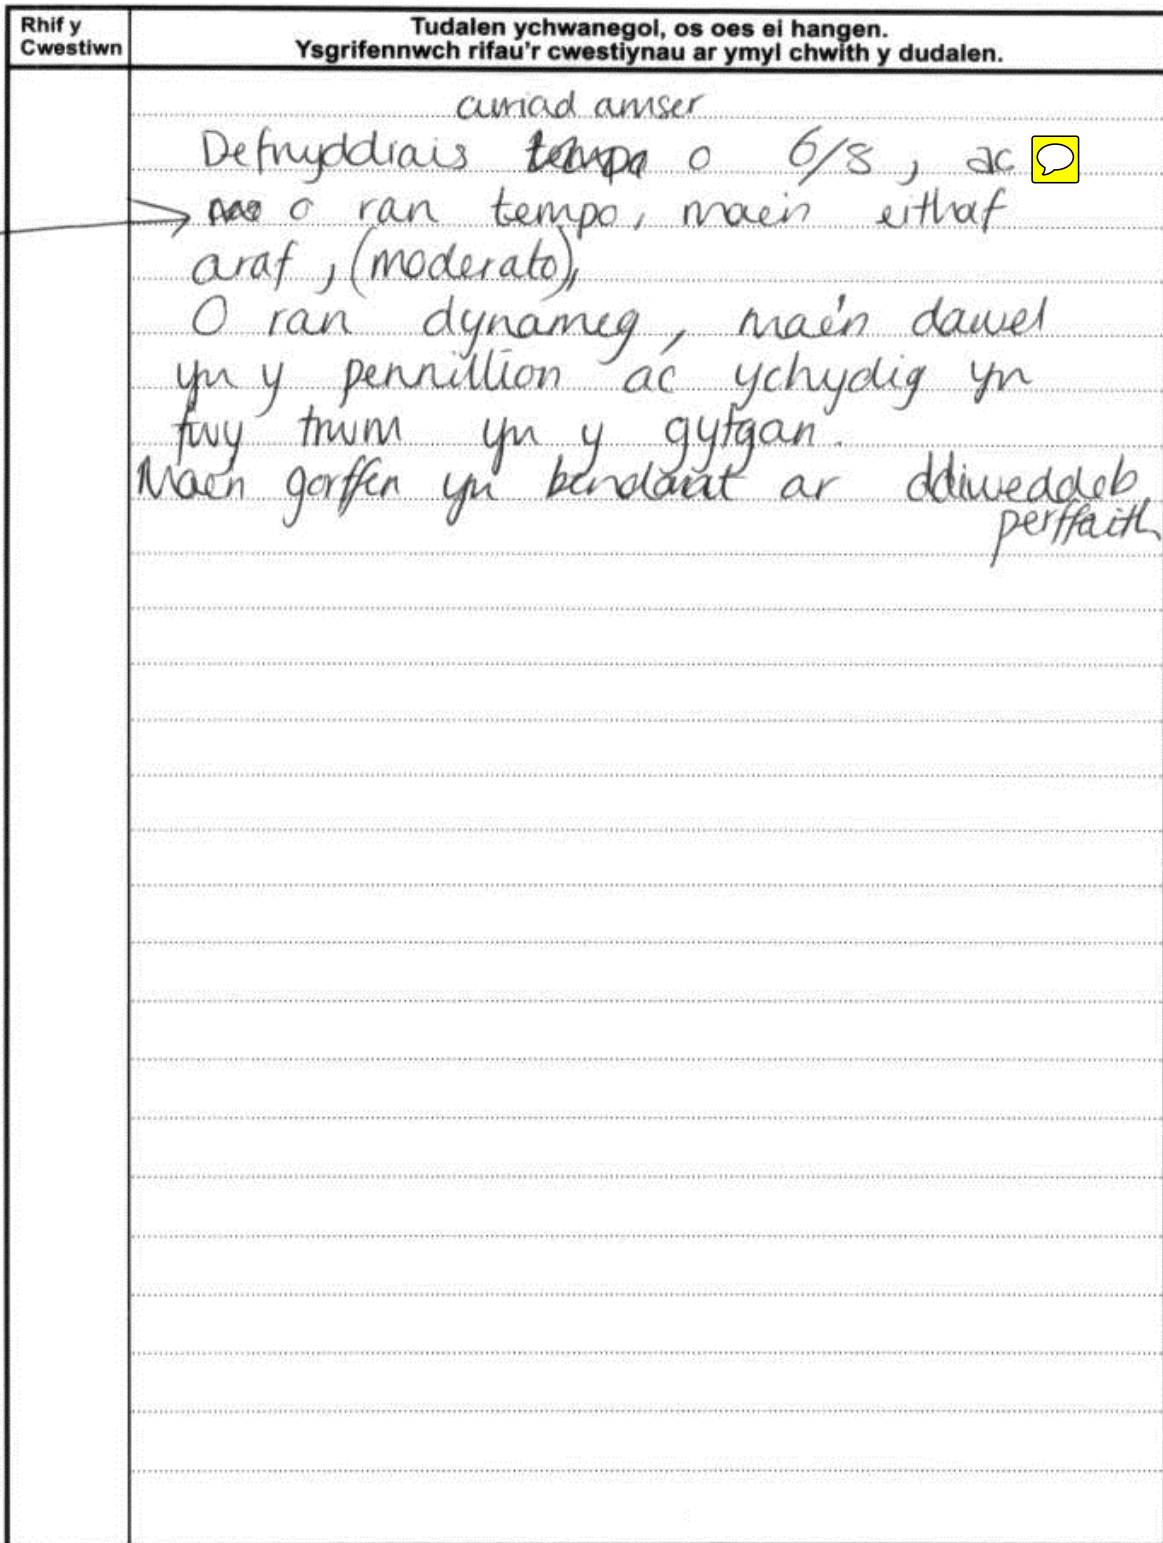 Rhif y
Cwestiwn
Tudalen ychwanegol, os oes ei hangen.
Ysgrifennwch rifau'r cwestiynau ar ymyl chwith y dudalen.
curiad amser
Defnyddiais tempo o 6/8, ac
o ran tempo, maein eithaf
araf, (moderato),
O ran dynameg, mae'n dawel
yn y pennillion ac ychydig yn
fwy trwm yn y gytgan.
Maen gorffen yn bendant ar ddiweddeb
perffaith